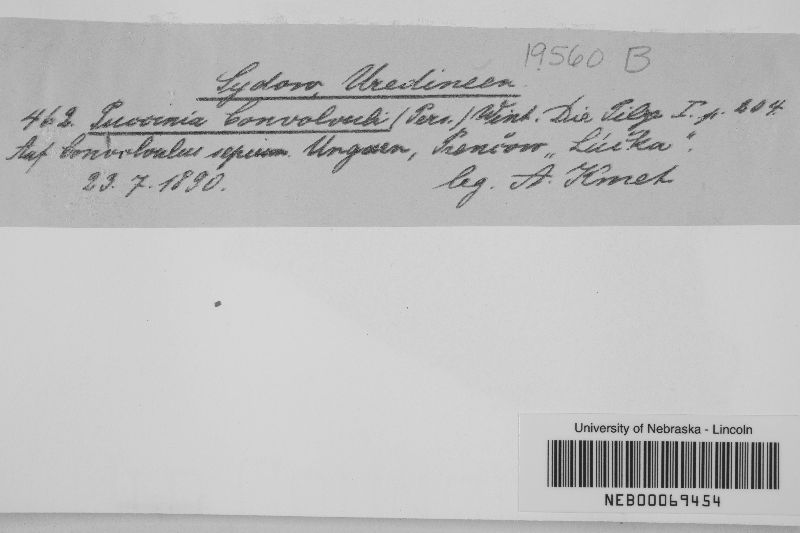 19560 B
Sydow, Uredineen.
462. Puccinia Convolvuli (Pers.) Wint. Die Pilze I. p. 204.
Auf Convolvulus sepium. Ungarn, Prenčow „Lúčka“.
23. 7. 1890. leg. A. Kmet
University of Nebraska - Lincoln
NEB00069454